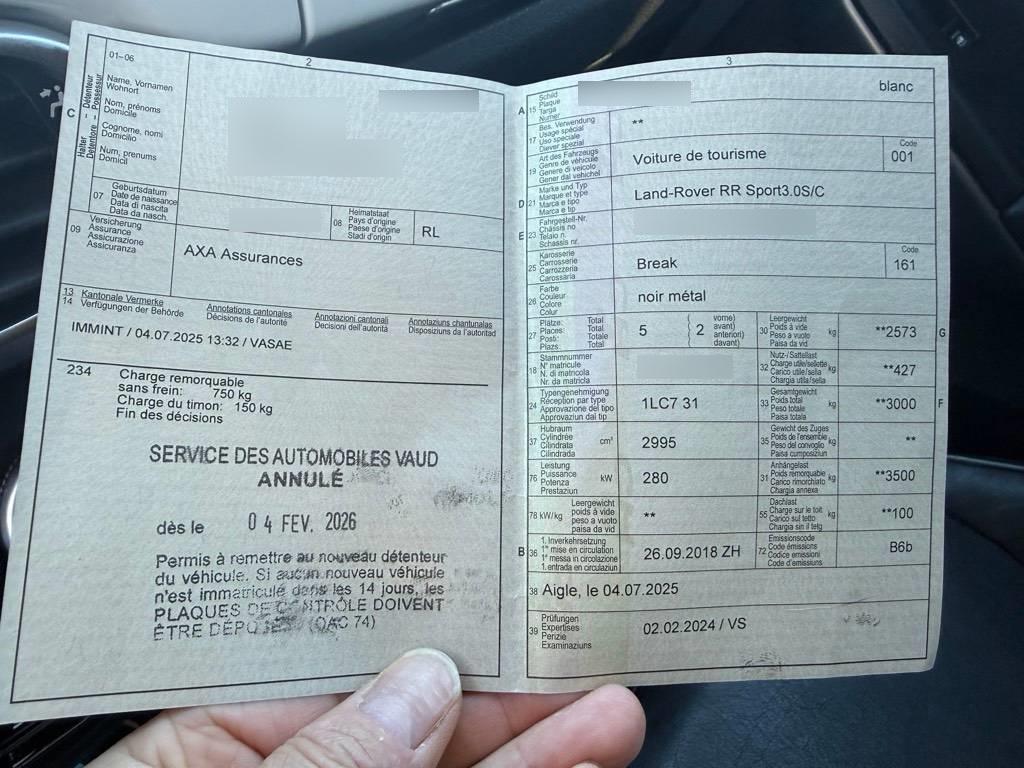 2
01–06
C
Halter – Détenteur
Detentore – Possessur
Name, Vornamen
Wohnort
Nom, prénoms
Domicile
Cognome, nomi
Domicilio
Num, prenums
Domicil
07
Geburtsdatum
Date de naissance
Data di nascita
Data da nasch.
08
Heimatstaat
Pays d'origine
Paese d'origine
Stadi d'origin
RL
09
Versicherung
Assurance
Assicurazione
Assicuranza
AXA Assurances
13 Kantonale Vermerke
14 Verfügungen der Behörde
Annotations cantonales
Décisions de l'autorité
Annotazioni cantonali
Decisioni dell'autorità
Annotaziuns chantunalas
Disposiziuns da l'autoritad
IMMINT / 04.07.2025 13:32 / VASAE
234 Charge remorquable
sans frein: 750 kg
Charge du timon: 150 kg
Fin des décisions
SERVICE DES AUTOMOBILES VAUD
ANNULÉ
dès le 04 FEV. 2026
Permis à remettre au nouveau détenteur
du véhicule. Si aucun nouveau véhicule
n'est immatriculé dans les 14 jours, les
PLAQUES DE CONTRÔLE DOIVENT
ÊTRE DÉPOSÉES (OAC 74)
3
A 15
Schild
Plaque
Targa
Numer
blanc
17
Bes. Verwendung
Usage spécial
Uso speciale
Diever spezial
**
19
Art des Fahrzeugs
Genre de véhicule
Genere di veicolo
Gener dal vehichel
Voiture de tourisme
Code
001
D 21
Marke und Typ
Marque et type
Marca e tipo
Marca e tip
Land-Rover RR Sport3.0S/C
E 23
Fahrgestell-Nr.
Châssis no
Telaio n.
Schassis nr.
25
Karosserie
Carrosserie
Carrozzeria
Carossaria
Break
Code
161
26
Farbe
Couleur
Colore
Colur
noir métal
27
Plätze: Total
Places: Total
Posti: Totale
Plazs: Total
5
( 2
vorne)
avant)
anteriori)
davant)
30
Leergewicht
Poids à vide
Peso a vuoto
Paisa da vid
kg
**2573
G
18
Stammnummer
N° matricule
N. di matricola
Nr. da matricla
32
Nutz-/Sattellast
Charge utile/sellette
Carico utile/sella
Chargia utila/sella
kg
**427
24
Typengenehmigung
Réception par type
Approvazione del tipo
Approvaziun dal tip
1LC7 31
33
Gesamtgewicht
Poids total
Peso totale
Paisa totala
kg
**3000
F
37
Hubraum
Cylindrée
Cilindrata
Cilindrada
cm³
2995
35
Gewicht des Zuges
Poids de l'ensemble
Peso del convoglio
Paisa cumposiziun
kg
**
76
Leistung
Puissance
Potenza
Prestaziun
kW
280
31
Anhängelast
Poids remorquable
Carico rimorchiato
Chargia annexa
kg
**3500
78 kW/kg
Leergewicht
poids à vide
peso a vuoto
paisa da vid
**
55
Dachlast
Charge sur le toit
Carico sul tetto
Chargia sin il tetg
kg
**100
B 36
1. Inverkehrsetzung
1re mise en circulation
1a messa in circolazione
1. entrada en circulaziun
26.09.2018 ZH
72
Emissionscode
Code émissions
Codice emissioni
Code d'emissiuns
B6b
38 Aigle, le 04.07.2025
39
Prüfungen
Expertises
Perizie
Examinaziuns
02.02.2024 / VS